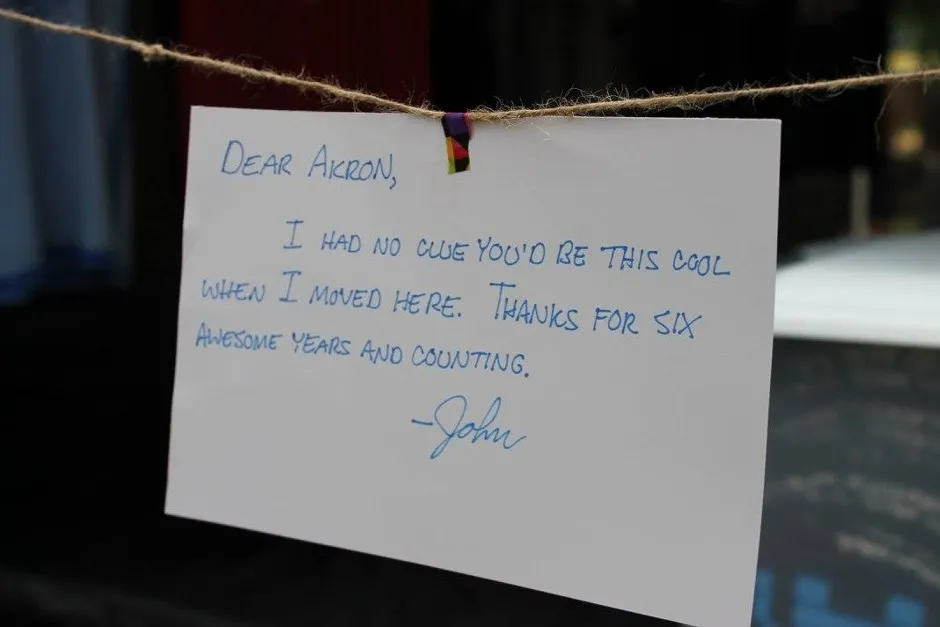 DEAR AKRON,
I HAD NO CLUE YOU'D BE THIS COOL
WHEN I MOVED HERE. THANKS FOR SIX
AWESOME YEARS AND COUNTING.
-John